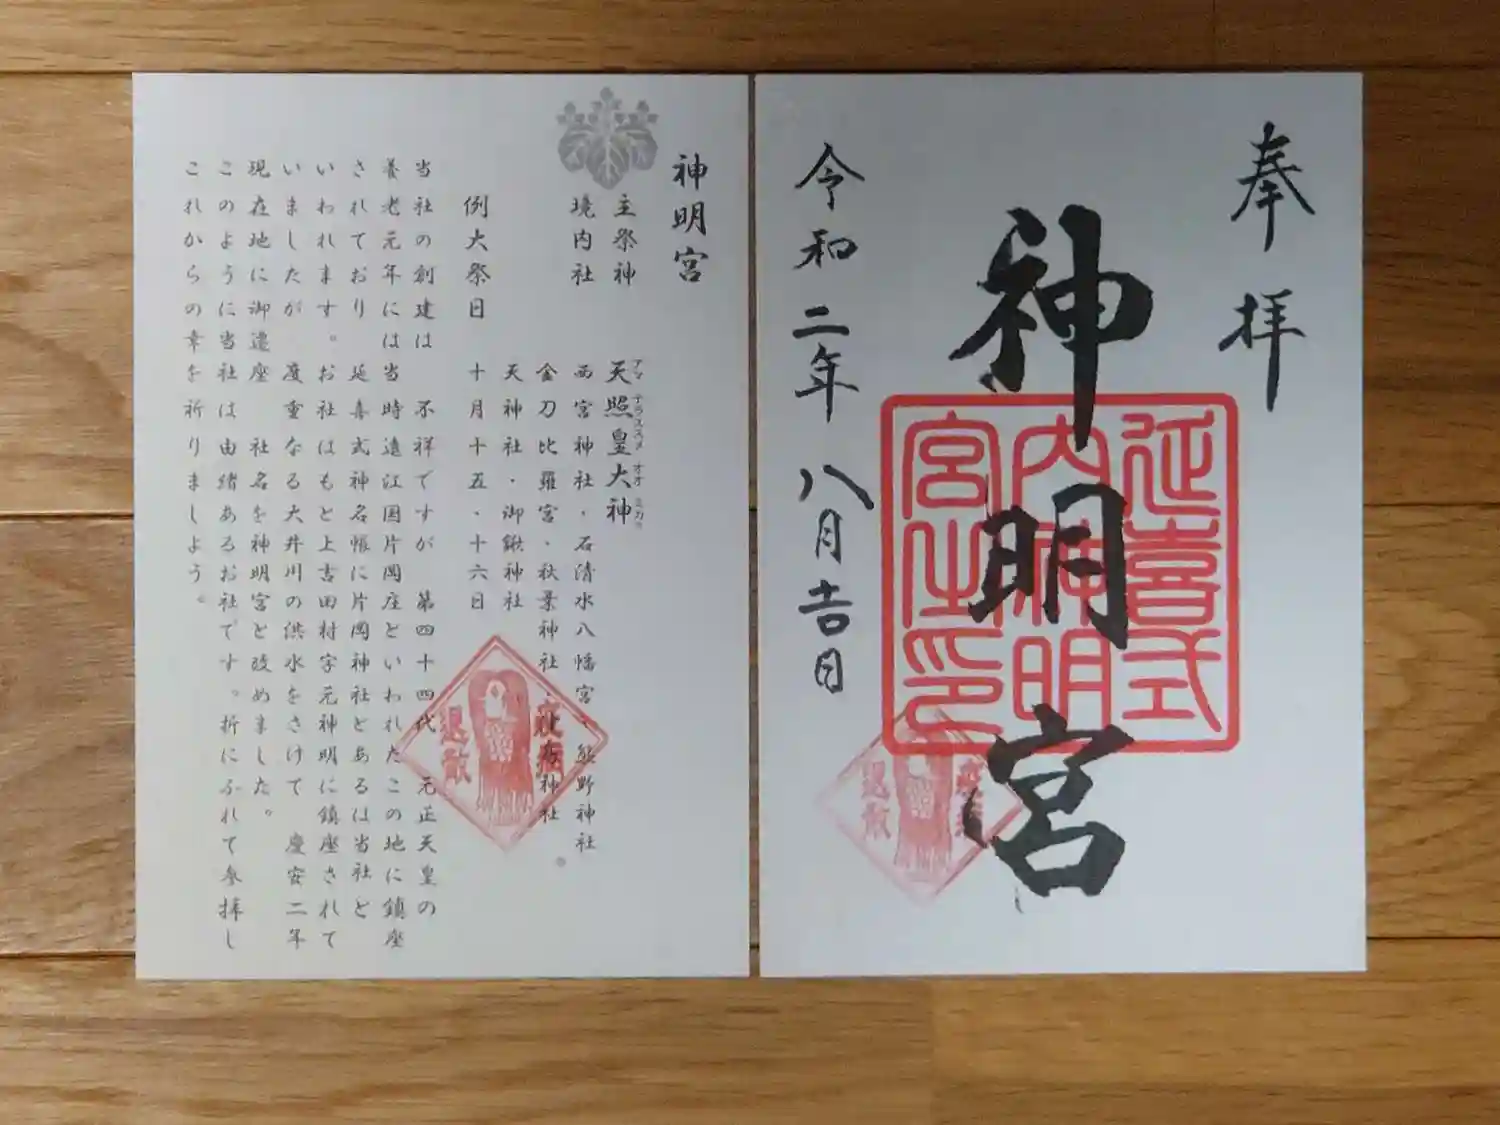 奉拝
神明宮
令和二年八月吉日
延喜式
内神明
宮之印
退散
神明宮
主祭神 天照皇大神
アマ テラススメ オオ ミカミ
境内社 西宮神社・石清水八幡宮・熊野神社
金刀比羅宮・秋葉神社・
神社
天神社・御鍬神社
例大祭日 十月十五・十六日
当社の創建は 不祥ですが 第四十四代 元正天皇の
養老元年には 当時遠江国片岡庄といわれたこの地に鎮座
されており 延喜式神名帳に片岡神社とあるは当社と
いわれます。 お社はもと上吉田村字元神明に鎮座されて
いましたが 度重なる大井川の洪水をさけて 慶安二年
現在地に御遷座 社名を神明宮と改めました。
このように当社は由緒あるお社です。折にふれて参拝し
これからの幸を祈りましょう。
退散